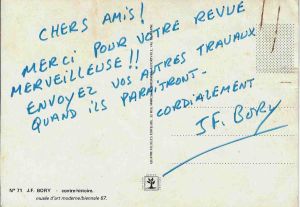 CHERS AMIS!
MERCI POUR VOTRE REVUE
MERVEILLEUSE!!
ENVOYEZ VOS AUTRES TRAVAUX
QUAND ILS PARAÎTRONT.
CORDIALEMENT
JF. BORY
N° 71 J.F. BORY - contre histoire.
musée d'art moderne/biennale 67.